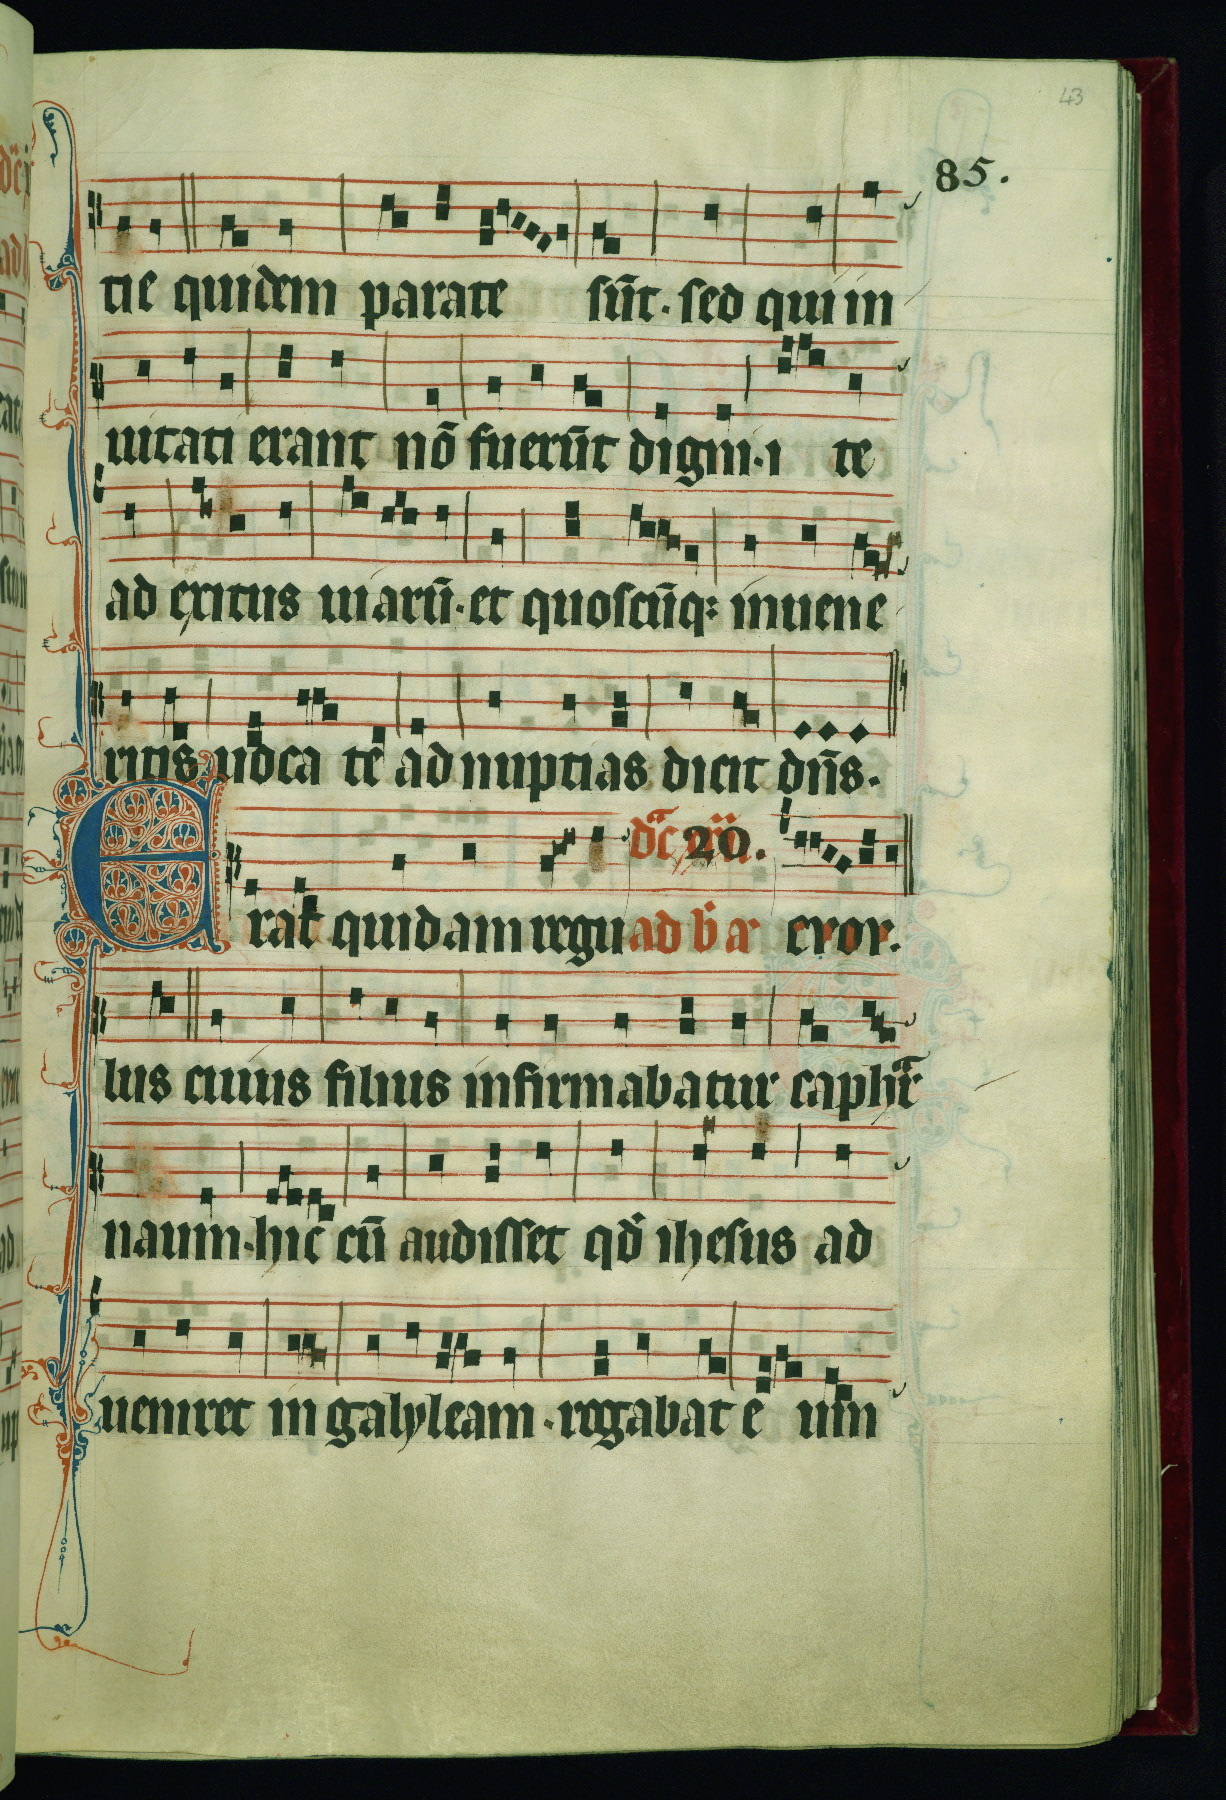 43
85.
tie quidem parate sūt. sed qui in
uitati erant nō fuerūt digni. i te
ad exitus uiarū. et quoscūq; inuene
ritis uoca te ad nuptias dicit dn̄s.
Dc̄ 20.
Erat quidam regu ad b a evov.
lus cuius filius infirmabatur caphar
naum. hic cū audisset qđ ihesus ad
ueniret in galyleam. rogabat e um